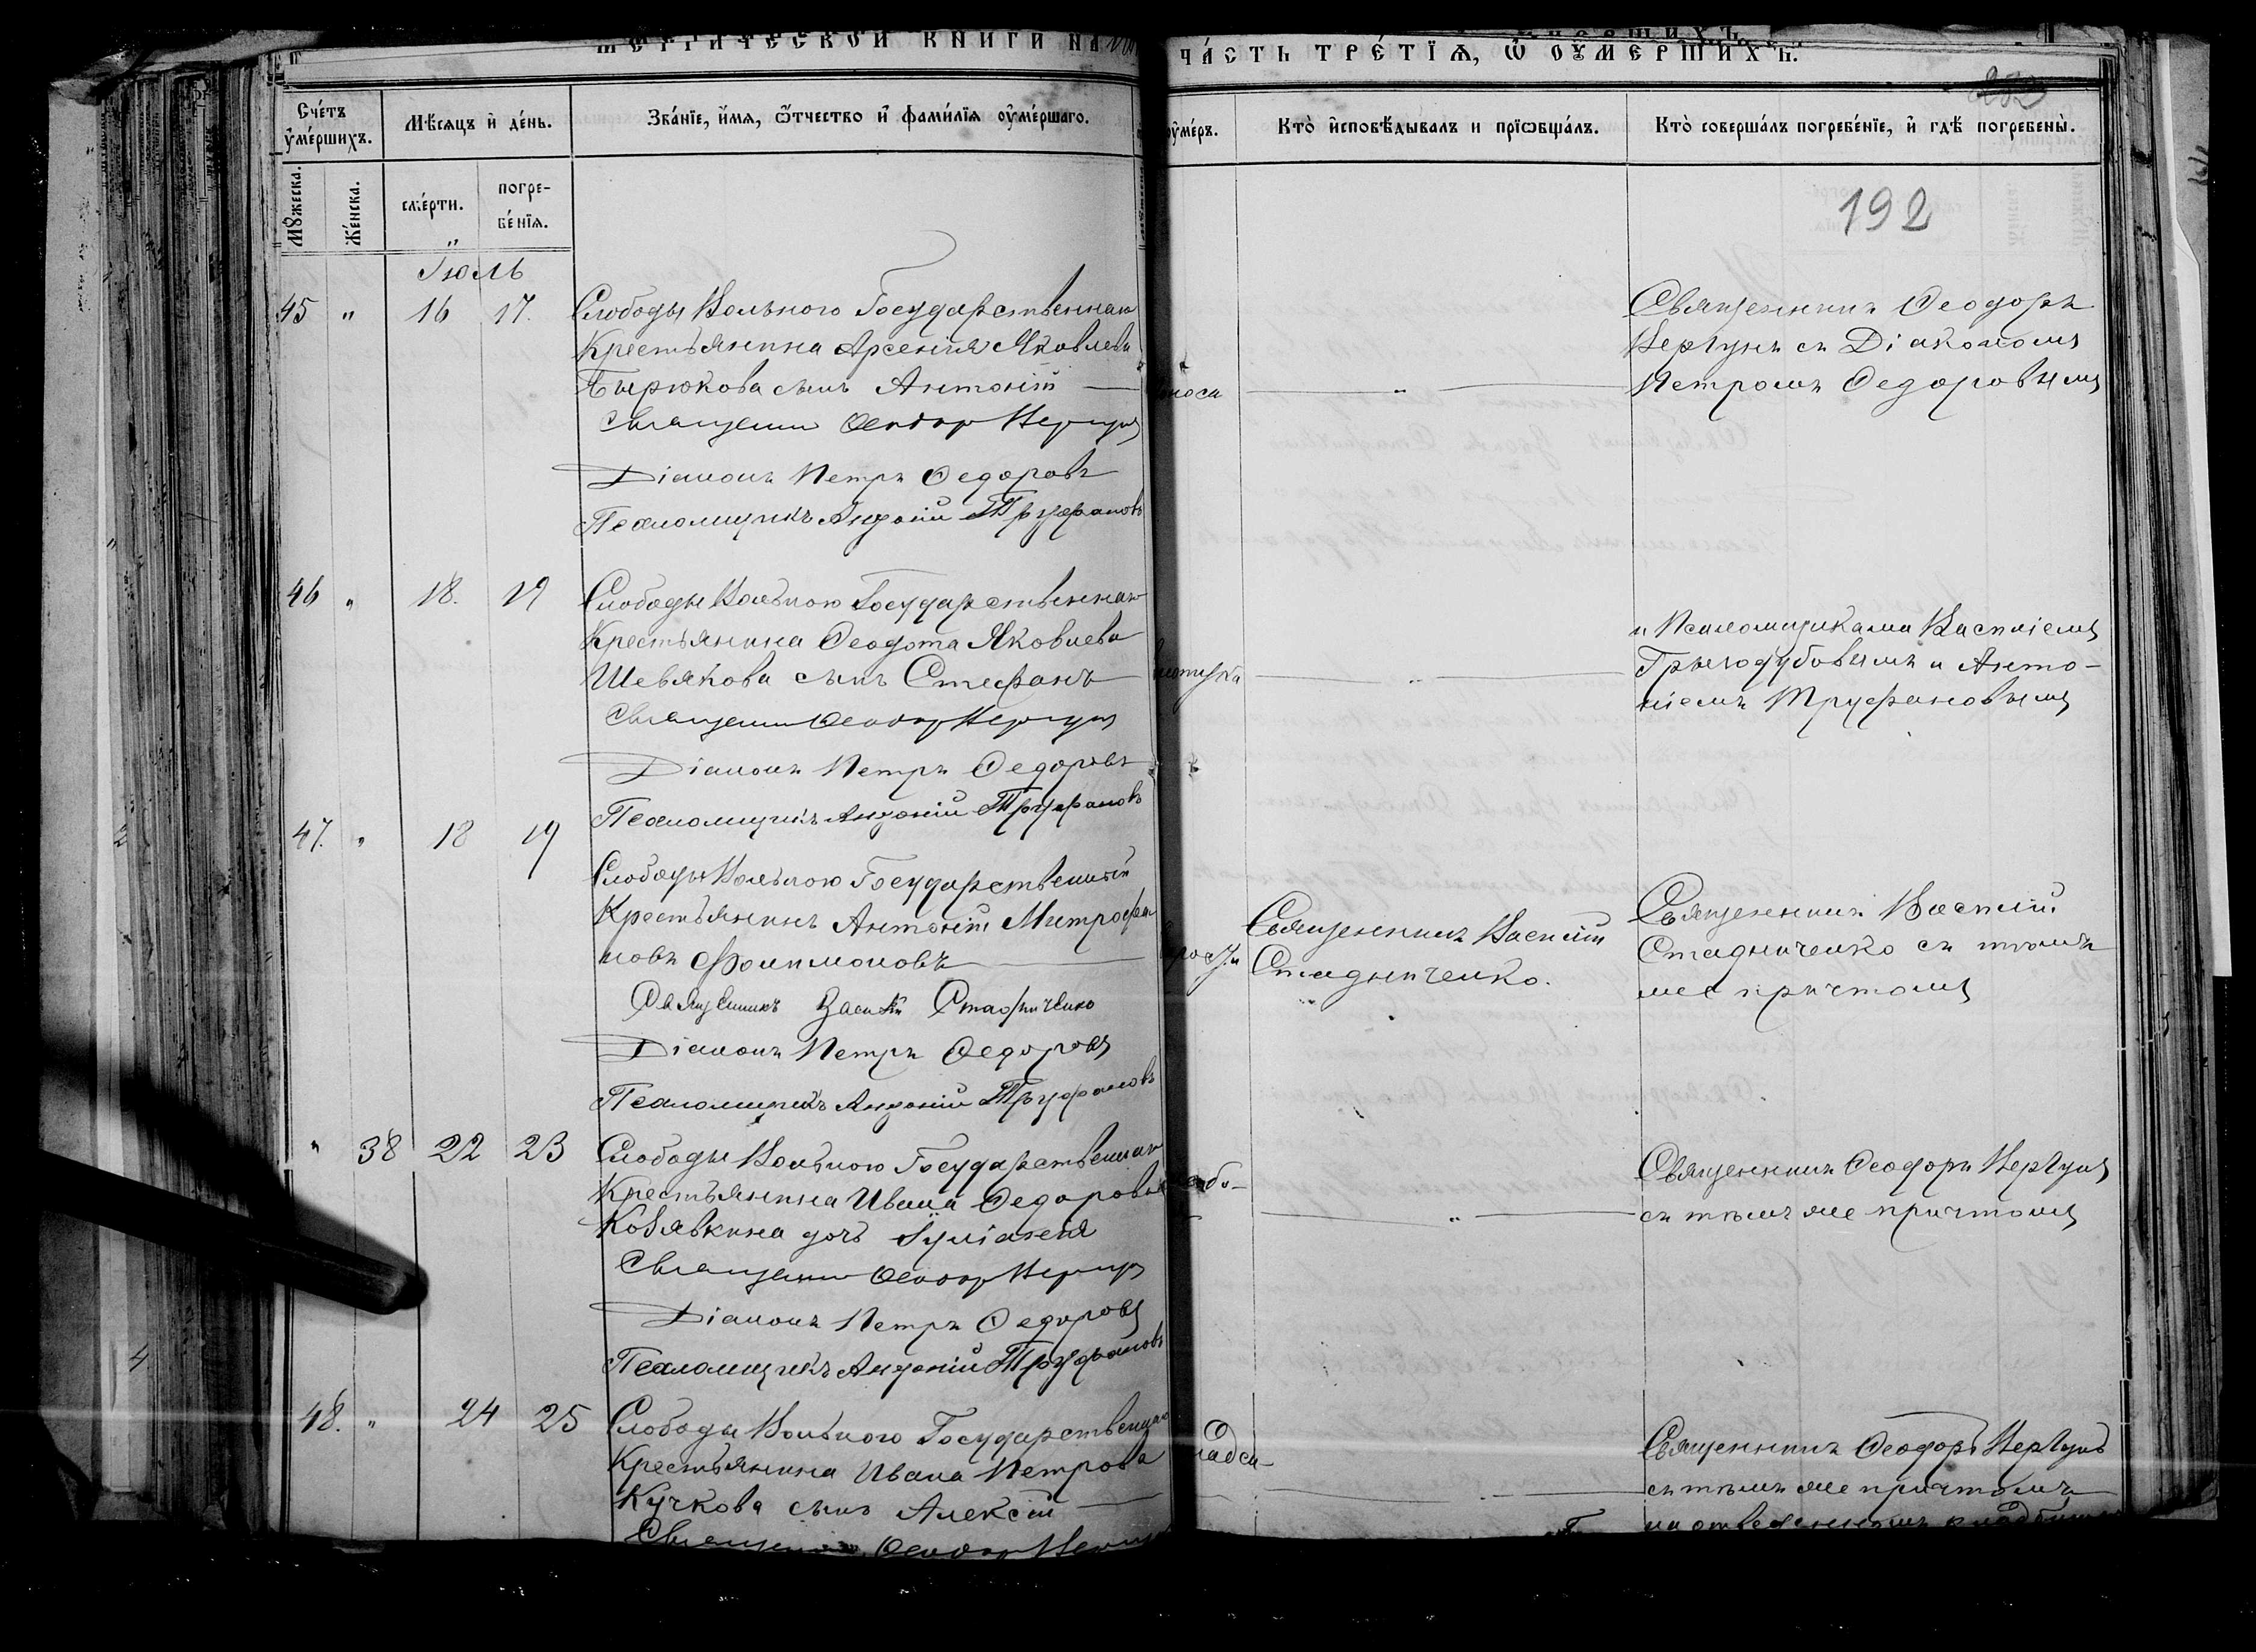 МЕТРИЧЕСКОЙ КНИГИ НА
ЧА́СТЬ ТРЕ́ТЇѦ, Ѽ ОУМЕРШИХЪ.
252
Сче́тъ оумершихъ.
Мѣсяцъ и де́нь.
Зва́нїе, и́мя, ѿчество и фами́лїя оуме́ршаго.
оуме́ръ.
Кто̀ исповѣ́дывалъ и прїѡбща́лъ.
Кто̀ соверша́лъ погребе́нїе, и гдѣ̀ погребены̀.
Мꙋжеска.
Же́нска.
сме́рти.
погре-
бе́нїя.
192
Іюль
45 " 16 17.
Слободы Вольного Государственнаго
Крестьянина Арсенія Яковлева
Бырюкова сынъ Антоній
Священникъ Феодоръ Вергунъ
Діаконъ Петръ Федоровъ
Псаломщикъ Антоній Труфановъ
носа
"
Священникъ Феодоръ
Вергунъ съ Діакономъ
Петромъ Федоровымъ
46 " 18. 19
Слободы Вольного Государственнаго
Крестьянина Феодота Яковлева
Шевякова сынъ Стефанъ
Священникъ Феодоръ Вергунъ
Діаконъ Петръ Федоровъ
Псаломщикъ Антоній Труфановъ
"
и Псаломщиками Василіемъ
Грызодубовымъ и Анто-
ніемъ Труфановымъ
47. " 18 19
Слободы Вольного Государственный
Крестьянинъ Антоній Митрофа
новъ Филимоновъ
Священникъ Василій Стадниченко
Діаконъ Петръ Федоровъ
Псаломщикъ Антоній Труфановъ
Священникъ Василій
Стадниченко.
Священникъ Василій
Стадниченко съ тѣмъ
же причтомъ
" 38 22 23
Слободы Вольного Государственнаго
Крестьянина Ивана Федорова
Козявкина дочь Іуліанія
Священникъ Феодоръ Вергунъ
Діаконъ Петръ Федоровъ
Псаломщикъ Антоній Труфановъ
"
Священникъ Феодоръ Вергунъ
съ тѣмъ же причтомъ
48. " 24 25
Слободы Вольного Государственнаго
Крестьянина Ивана Петрова
Кучкова сынъ Алексій
Священникъ Феодоръ Вергунъ
Священникъ Феодоръ Вергунъ
съ тѣмъ же причтомъ
на отведенномъ кладбищѣ